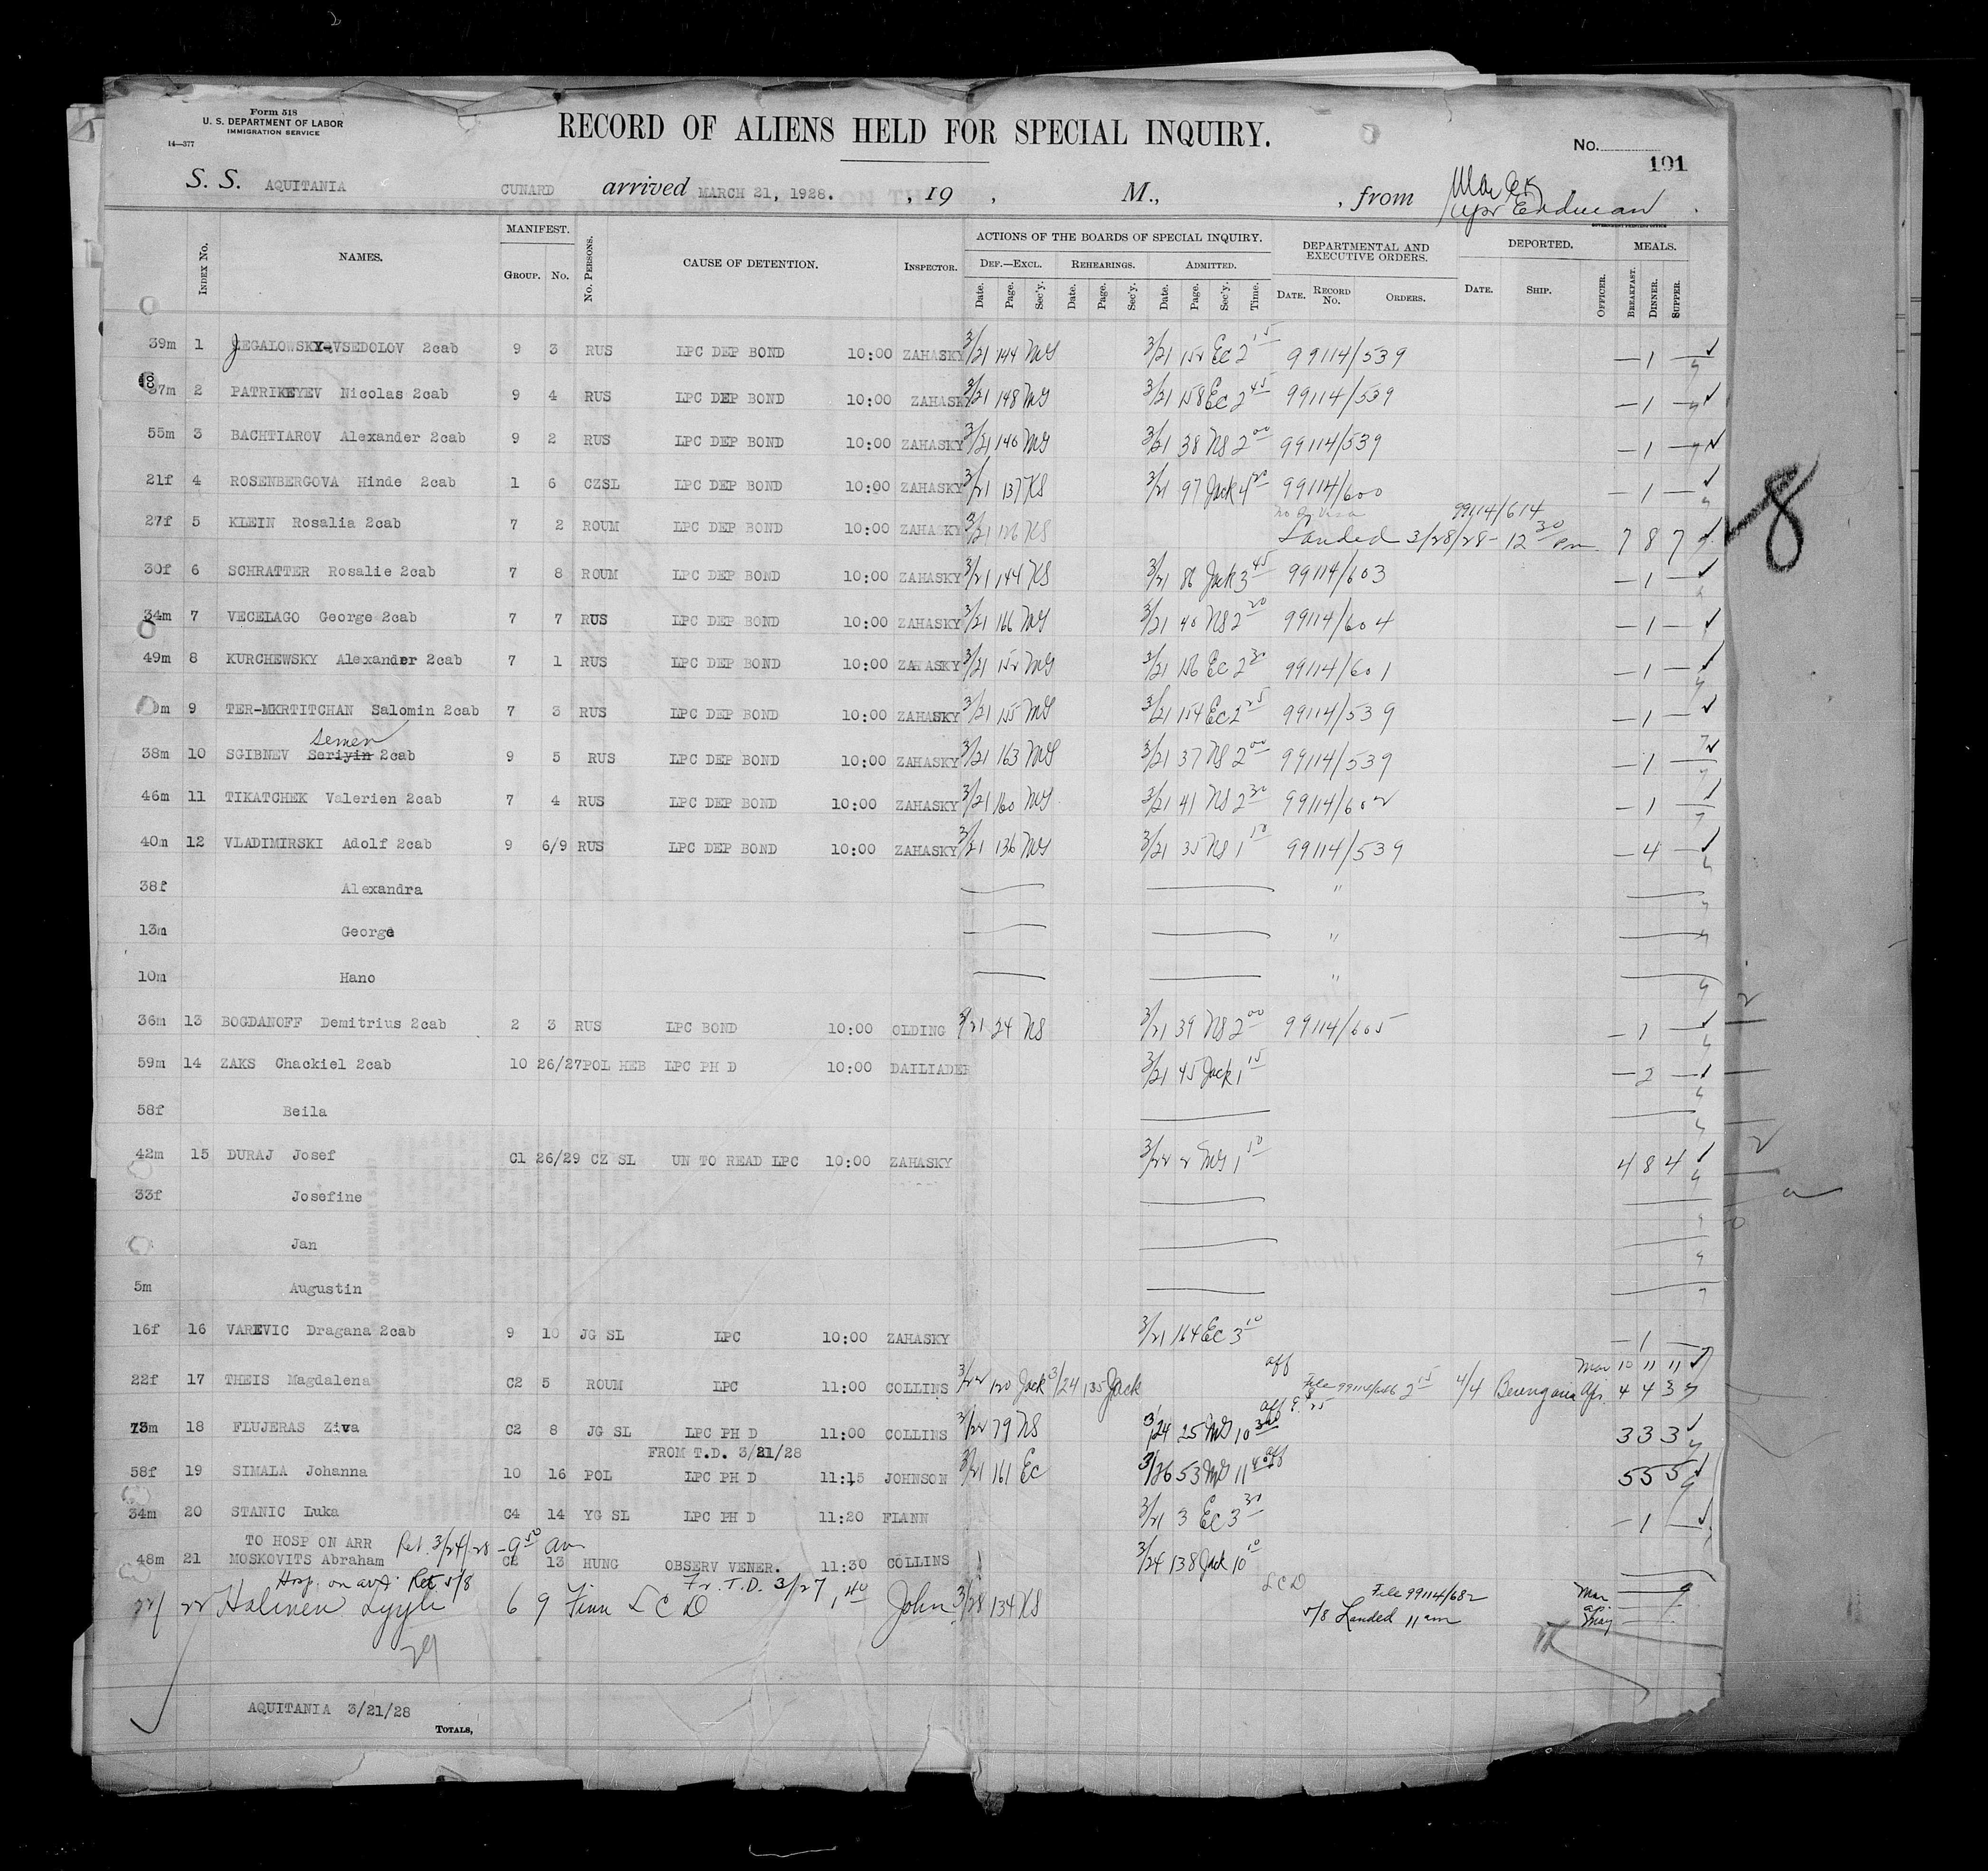 2
Form 518
U. S. DEPARTMENT OF LABOR
IMMIGRATION SERVICE
14—377
RECORD OF ALIENS HELD FOR SPECIAL INQUIRY.
No.
191
S. S. AQUITANIA CUNARD arrived MARCH 21, 1928. , 19 , M., , from
GOVERNMENT PRINTING OFFICE
INDEX No. NAMES. MANIFEST. GROUP. No. No. PERSONS. CAUSE OF DETENTION. INSPECTOR. ACTIONS OF THE BOARDS OF SPECIAL INQUIRY. DEPARTMENTAL AND EXECUTIVE ORDERS. DEPORTED. MEALS.
DEF.—EXCL. REHEARINGS. ADMITTED.
Date. Page. Sec'y. Date. Page. Sec'y. Date. Page. Sec'y. Time. DATE. RECORD No. ORDERS. DATE. SHIP. OFFICER. BREAKFAST. DINNER. SUPPER.
39m 1 ZEGALOWSKY-VSEDOLOV 2cab 9 3 RUS LPC DEP BOND 10:00 ZAHASKY 3/21 144 MG 3/21 152 EC 2 15 99114/539 — 1 —
37m 2 PATRIKEYEV Nicolas 2cab 9 4 RUS LPC DEP BOND 10:00 ZAHASK 3/21 148 MG 3/21 158 EC 2 45 99114/539 — 1 —
55m 3 BACHTIAROV Alexander 2cab 9 2 RUS LPC DEP BOND 10:00 ZAHASKY 3/21 140 MG 3/21 38 NS 2 00 99114/539 — 1 —
21f 4 ROSENBERGOVA Hinde 2cab 1 6 CZSL LPC DEP BOND 10:00 ZAHASKY 3/21 137 KS 3/21 97 Jack 4 20 99114/600 — 1 —
27f 5 KLEIN Rosalia 2cab 7 2 ROUM LPC DEP BOND 10:00 ZAHASKY 3/21 126 KS 99114/614 Landed 3/28/28 - 12 30 Pm 7 8 7
8
30f 6 SCHRATTER Rosalie 2cab 7 8 ROUM LPC DEP BOND 10:00 ZAHASKY 3/21 144 KS 3/21 86 Jack 3 45 99114/603 — 1 —
34m 7 VECELAGO George 2cab 7 7 RUS LPC DEP BOND 10:00 ZAHASKY 3/21 166 MG 3/21 40 NS 2 20 99114/604 — 1 —
49m 8 KURCHEWSKY Alexander 2cab 7 1 RUS LPC DEP BOND 10:00 ZAHASKY 3/21 152 MG 3/21 156 EC 2 30 99114/601 — 1 —
9 TER-MKRTITCHAN Salomin 2cab 7 3 RUS LPC DEP BOND 10:00 ZAHASKY 3/21 155 MG 3/21 154 EC 2 25 99114/539 — 1 —
Semen
38m 10 SGIBNEV Seriyin 2cab 9 5 RUS LPC DEP BOND 10:00 ZAHASKY 3/21 163 MG 3/21 37 NS 2 00 99114/539 — 1 —
46m 11 TIKATCHEK Valerien 2cab 7 4 RUS LPC DEP BOND 10:00 ZAHASKY 3/21 160 MG 3/21 41 NS 2 30 99114/602 — 1 —
40m 12 VLADIMIRSKI Adolf 2cab 9 6/9 RUS LPC DEP BOND 10:00 ZAHASKY 3/21 136 MG 3/21 35 NS 1 10 99114/539 — 4 —
38f Alexandra "
13m George "
10m Hano "
36m 13 BOGDANOFF Demitrius 2cab 2 3 RUS LPC BOND 10:00 OLDING 3/21 24 NS 3/21 39 NS 2 00 99114/605 — 1 —
59m 14 ZAKS Chackiel 2cab 10 26/27 POL HEB LPC PH D 10:00 DAILIADER 3/21 45 Jack 1 15 — 2 —
58f Beila
42m 15 DURAJ Josef C1 26/29 CZ SL UN TO READ LPC 10:00 ZAHASKY 3/22 2 MG 1 10 4 8 4
33f Josefine
Jan
5m Augustin
16f 16 VAREVIC Dragana 2cab 9 10 JG SL LPC 10:00 ZAHASKY 3/21 164 EC 3 10 — 1 —
22f 17 THEIS Magdalena C2 5 ROUM LPC 11:00 COLLINS 3/22 120 Jack 3/24 135 Jack aff File 99114/686 2 15 4/4 Berengaria Mar 10 11 11 Apr. 4 4 3
73m 18 FLUJERAS Ziva C2 8 JG SL LPC PH D 11:00 COLLINS 3/22 79 NS 3/24 25 MG 10 3 3 3
FROM T.D. 3/21/28
58f 19 SIMALA Johanna 10 16 POL LPC PH D 11:15 JOHNSON 3/21 161 EC 3/26 53 MG 11 40 aff 5 5 5
34m 20 STANIC Luka C4 14 YG SL LPC PH D 11:20 FLANN 3/21 3 EC 3 30 — 1 —
TO HOSP ON ARR Ret. 3/24/28 - 9 50 am
48m 21 MOSKOVITS Abraham C2 13 HUNG OBSERV VENER. 11:30 COLLINS 3/24 138 Jack 10 10
Hosp. on arr. Ret 5/8 Fr. T.D. 3/27 LCD File 99114/682 Mar
22 Halinen Lyyli 6 9 Finn L C D 1 40 John. 3/28 134 KS 5/8 Landed 11 am ap. May
29
AQUITANIA 3/21/28
TOTALS,